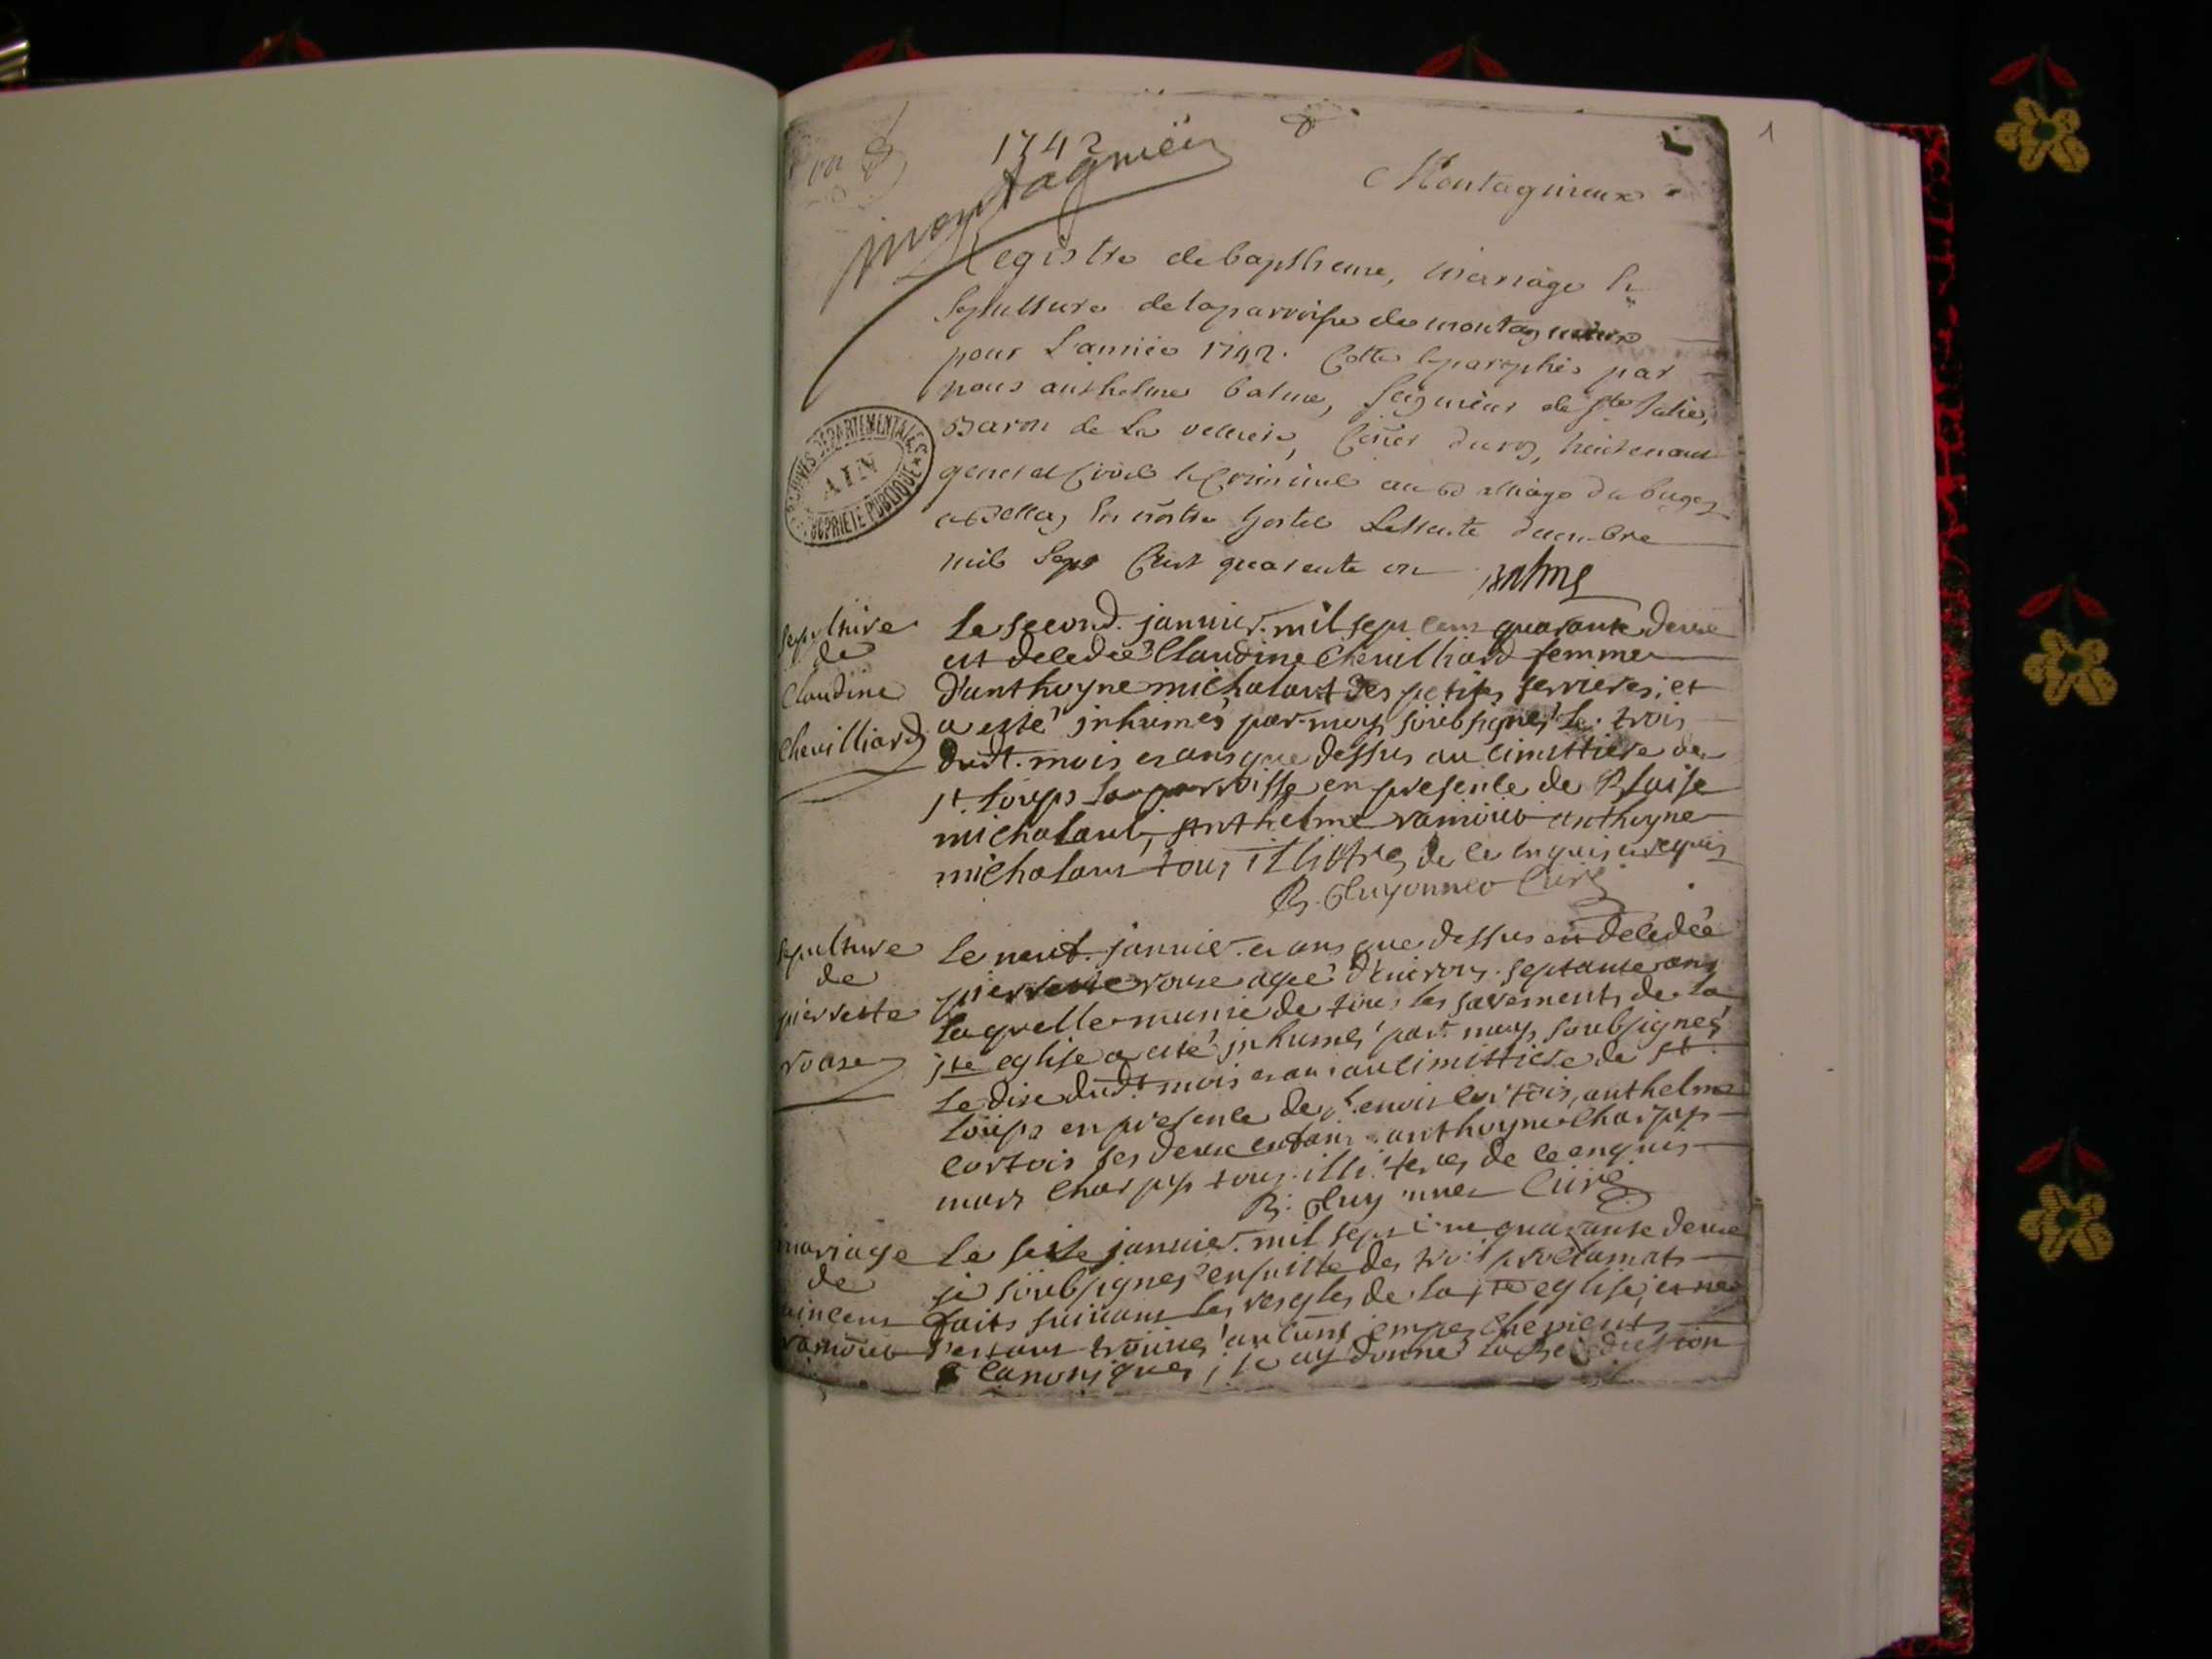 1742
montagnieu
Montagnieux
1
Registre de baptheme, mariage &
Sepulture de la parroisse de montagnieux
pour L'année 1742. Cotté & paraphés par
nous anthelme balme, seigneur de Ste Julie,
Baron de La veliere, Coner du roy, Lieutenant
general Civil & Criminel au Bailliage du bugey
a Belley En nôtre hostel Le trente decembre
mil Sept Cent quarente un
Balme
ARCHIVES DÉPARTEMENTALES
AIN
PROPRIÉTÉ PUBLIQUE
Sepulture
de
Claudine
Cheuilliard
Le second. januier. mil sept cent quarante deux
est decedée Claudine Cheuilliard femme
d'anthoyne michalant des petites serrieres; et
a esté jnhumés par moy soubsignés le. trois
dudt. mois et ans que dessus au cimittiere de
st. Loups La parroisse en presence de Blaise
michalant, Anthelme ramoüd anthoyne
michalant tous illitres de ce enquis et requis
B. Guyonnet Curé
Sepulture
de
pierrette
roux
Le neuf. januier. et ans que dessus est decedée
pierrette roux agée d'environs septante ans
Laquelle munie de tous les sacrements de la
ste eglise a esté jnhumés par moy soubsignés
Le dix dudt mois et an au cimittiere de st.
Loups en presence de benoit cortois, anthelme
cortois ses deux enfans anthoyne Charpys
marc Charpys tous illitres de ce enquis
B. Guyonnet Curé
mariage
de
uincent
ramoüd
Le seize januier. mil sept cent quarante deux
je soubsignés ensuitte des trois proclamats
faits suiuant les regles de la ste eglise, et ne
s'estant trouués aucuns empechements
canoniques, j'ay donné la Benediction